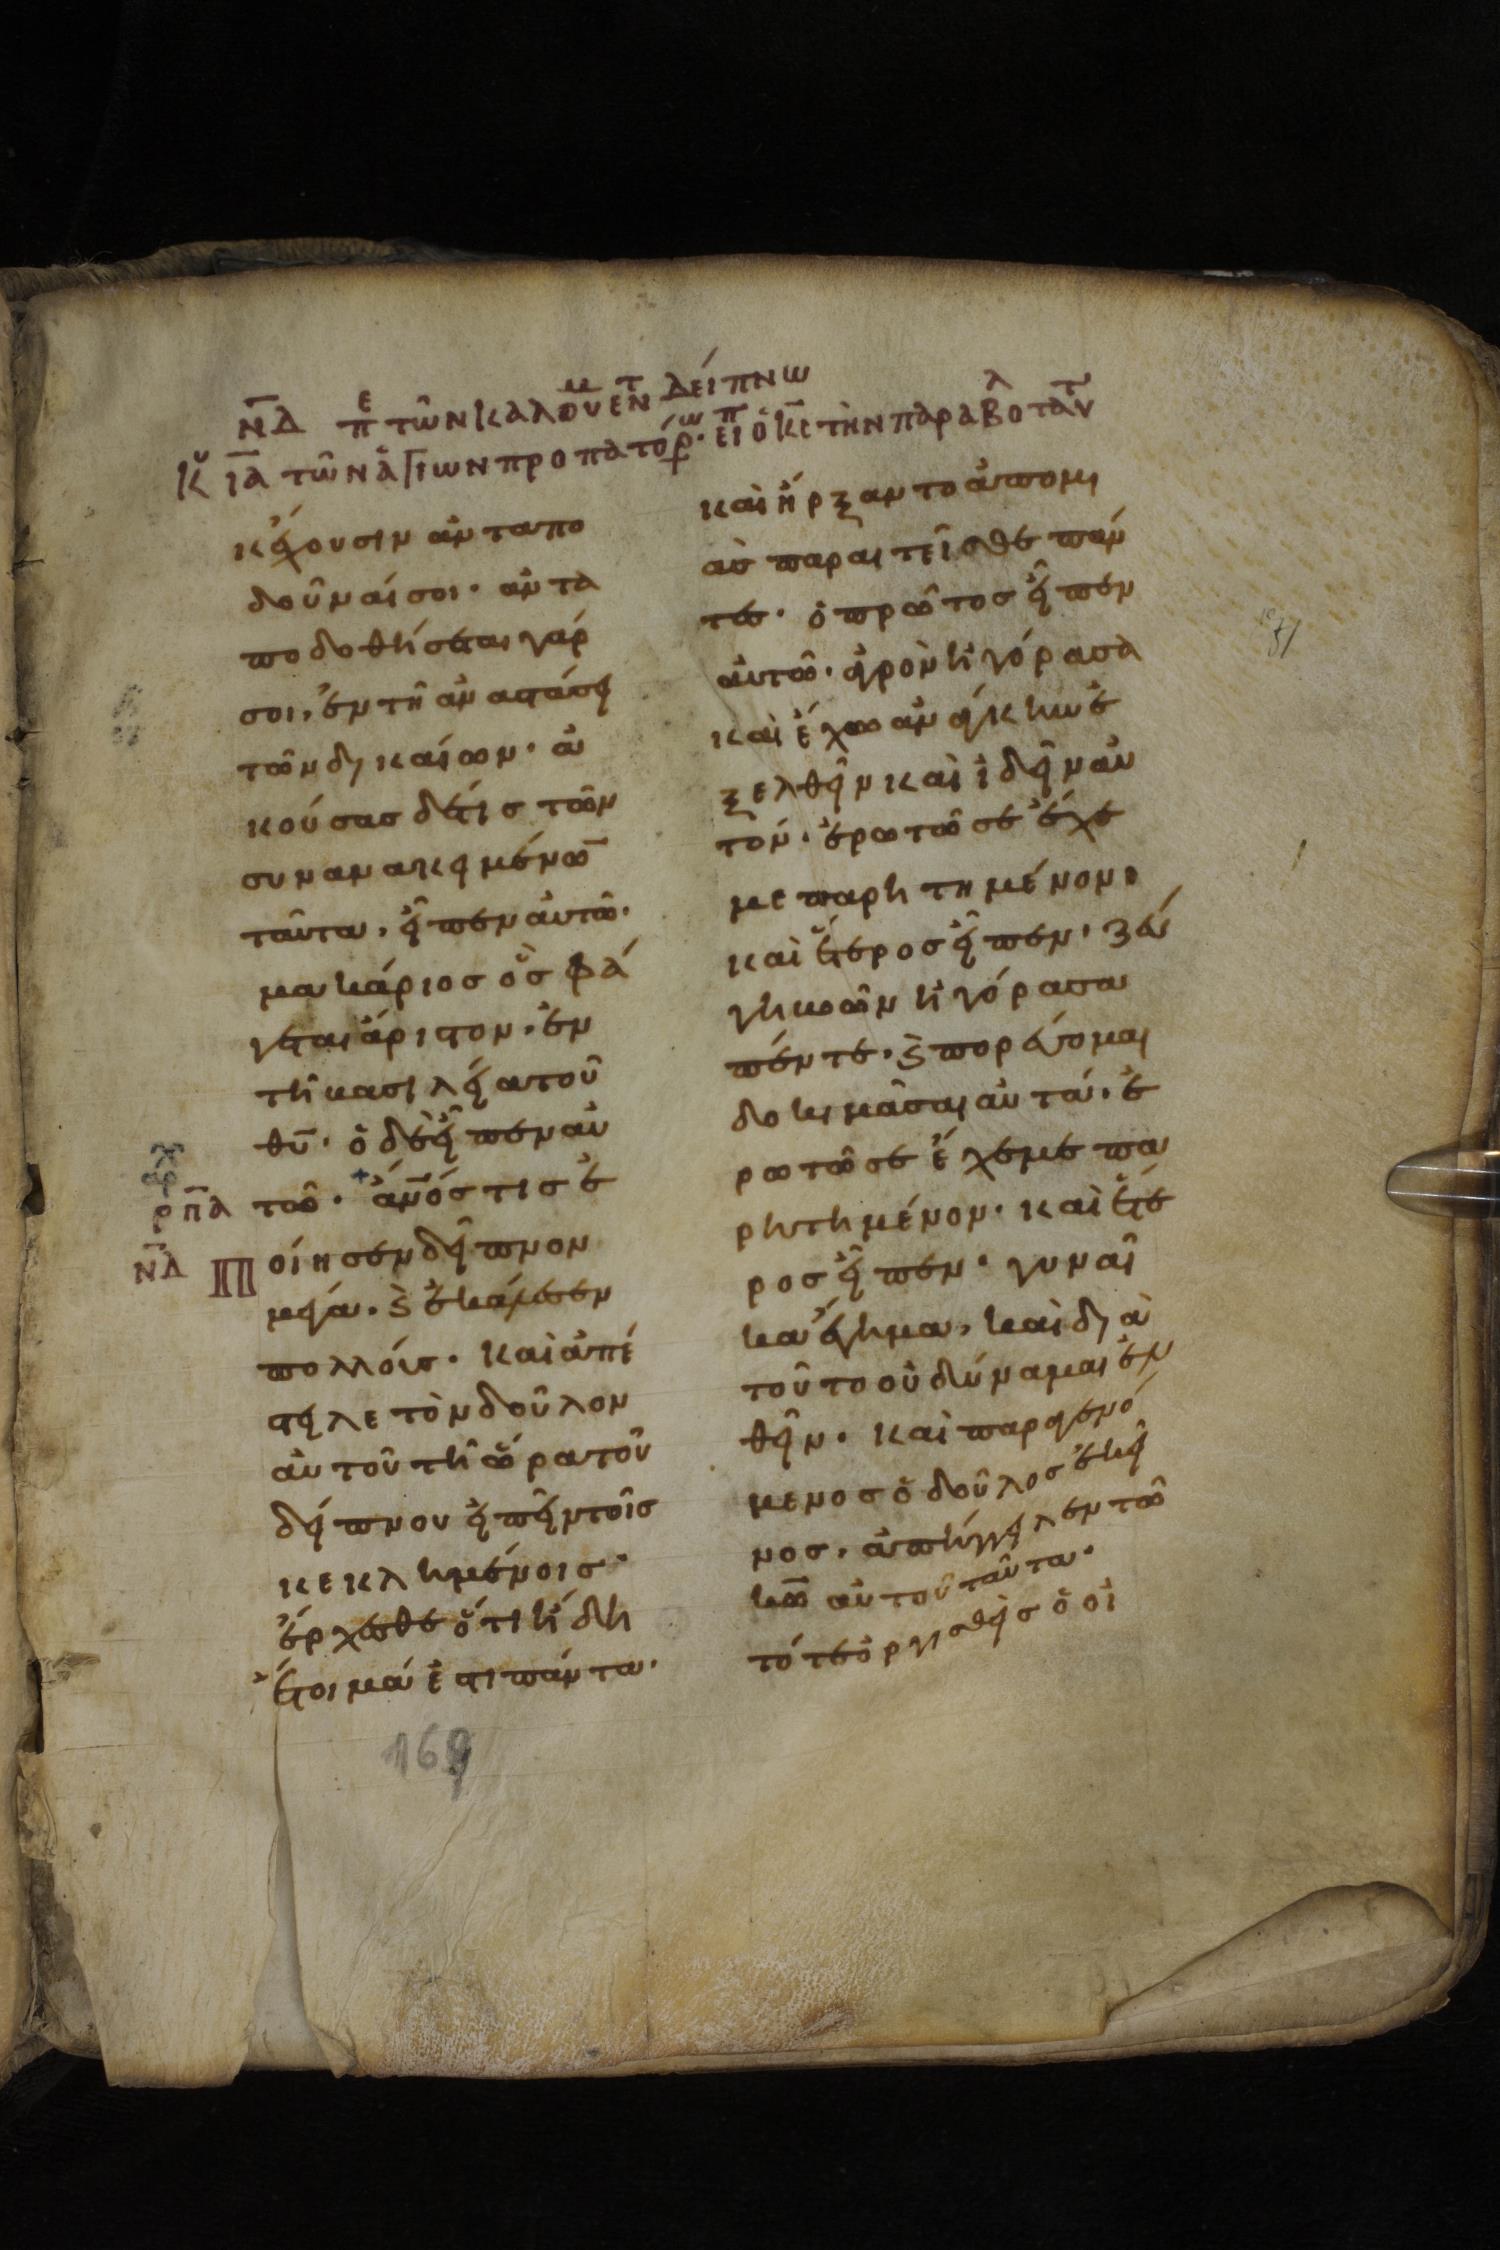 ΝΔ πε τῶν καλουμεντ δείπνω
Κυ ΙΑ τῶν ἁγίων προπατόρω· εἰπ ὁ κς τὴν παραβολ ταύτ
κἔχουσιν ἀνταπο
δοῦναί σοι· ἀντα
ποδοθήσεται γάρ
σοι, ἐν τῆ ἀναστάσει
τῶν δικαίων· ἀ
κούσας δέ τις τῶν
συνανακειμένω
ταῦτα, εἶπεν αὐτῶ·
μακάριος ὃς φά
γεται ἄριστον, ἐν
τῆ βασιλεία τοῦ
θυ· ὁ δὲ εἶπεν αὐ
τῶ· ανος τις ἐ
ρπα
νδ
Ποίησεν δεῖπνον
μέγα, κ ἐκάλεσεν
πολλούς· καὶ ἀπέ
στειλε τὸν δοῦλον
αὐτοῦ τῆ ὥρα τοῦ
δείπνου εἰπεῖν τοῖς
κεκλημένοις·
ἔρχεσθε ὅτι ἤδη
ἕτοιμά ἐστι πάντα·
καὶ ἤρξαντο ἀπὸ μι
ᾶς παραιτεῖσθε πάν
τες· ὁ πρῶτος εἶπεν
αὐτῶ· ἀγρὸν ἠγόρασα
καὶ ἔχω ἀνάγκην ἐ
ξελθεῖν καὶ ἰδεῖν αὐ
τόν· ἐρωτῶ σε ἔχε
με παρητημένον·
καὶ ἕτερος εἶπεν· ζεύ
γη βοῶν ἠγόρασα
πέντε· κ πορεύομαι
δοκιμᾶσαι αὐτά· ἐ
ρωτῶ σε ἔχε με πα
ρητημένον· καὶ ἕτε
ρος εἶπεν· γυναῖ
κα ἔγημα, καὶ διὰ
τοῦτο οὐ δύναμαι ἐλ
θεῖν· καὶ παραγενό
μενος ὁ δοῦλος ἐκεῖ
νος, ἀπήγγειλεν τῶ
κω αὐτοῦ ταῦτα·
τότε ὀργισθεὶς ὁ οἰ
169